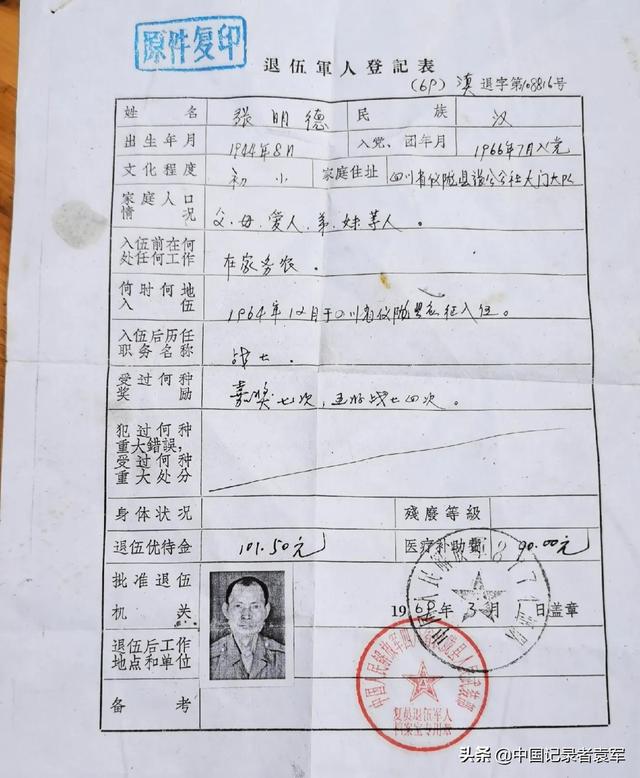 原件复印
退伍軍人登記表
(69)滇退字第108816号
姓名 張明德 民族 汉
出生年月 1944年8月 入党、团年月 1966年7月入党
文化程度 初小 家庭住址 四川省仪陇县 公社大门大队
家庭人口情况 父.母.爱人.弟.妹等人。
入伍前在何处任何工作 在家务农.
何时何地入伍 1964年12月于四川省仪陇县 征入伍。
入伍后历任职务名称 战士.
受过何种奖励 嘉奖七次，五好战士四次。
犯过何种重大錯誤，受过何种重大处分
身体状况 残廢等級
退伍优待金 101.50元 医疗补助費 90.00元
批准退伍机关 1969年3月1日盖章
退伍后工作地点和单位
备考
中国人民解放军
复员退伍军人
档案室专用章
头条 @中国记录者袁军